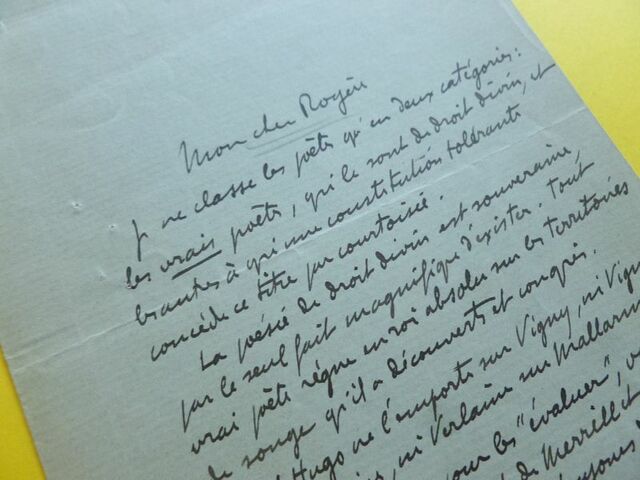 Mon cher Royère
Je ne classe les poètes qu'en deux catégories :
les vrais poètes, qui le sont de droit divin, et
les autres à qui une constitution tolérante
concède ce titre par courtoisie.
La poésie de droit divin est souveraine,
par le seul fait magnifique d'exister. Tout
vrai poète règne en roi absolu sur les territoires
de songe qu'il a découverts et conquis.
Hugo ne l'emporte sur Vigny, ni Vigny
ni Verlaine sur Mallarm
pour les "évaluer",
de Merrill et